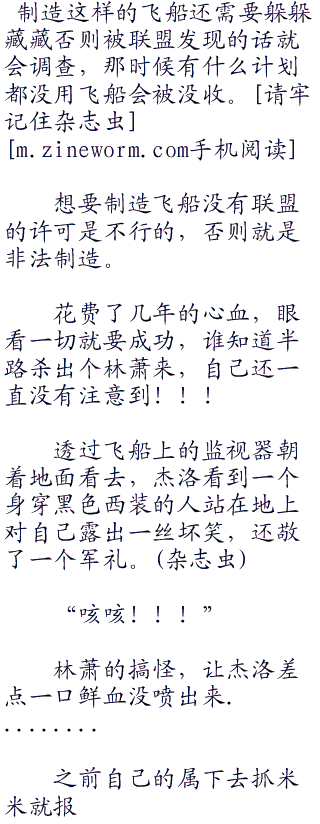 制造这样的飞船还需要躲躲
藏藏否则被联盟发现的话就
会调查，那时候有什么计划
都没用飞船会被没收。[请牢
记住杂志虫]
[m.zineworm.com手机阅读]
想要制造飞船没有联盟
的许可是不行的，否则就是
非法制造。
花费了几年的心血，眼
看一切就要成功，谁知道半
路杀出个林萧来，自己还一
直没有注意到！！！
透过飞船上的监视器朝
着地面看去，杰洛看到一个
身穿黑色西装的人站在地上
对自己露出一丝坏笑，还敬
了一个军礼。(杂志虫)
“咳咳！！！”
林萧的搞怪，让杰洛差
点一口鲜血没喷出来.
........
之前自己的属下去抓米
米就报